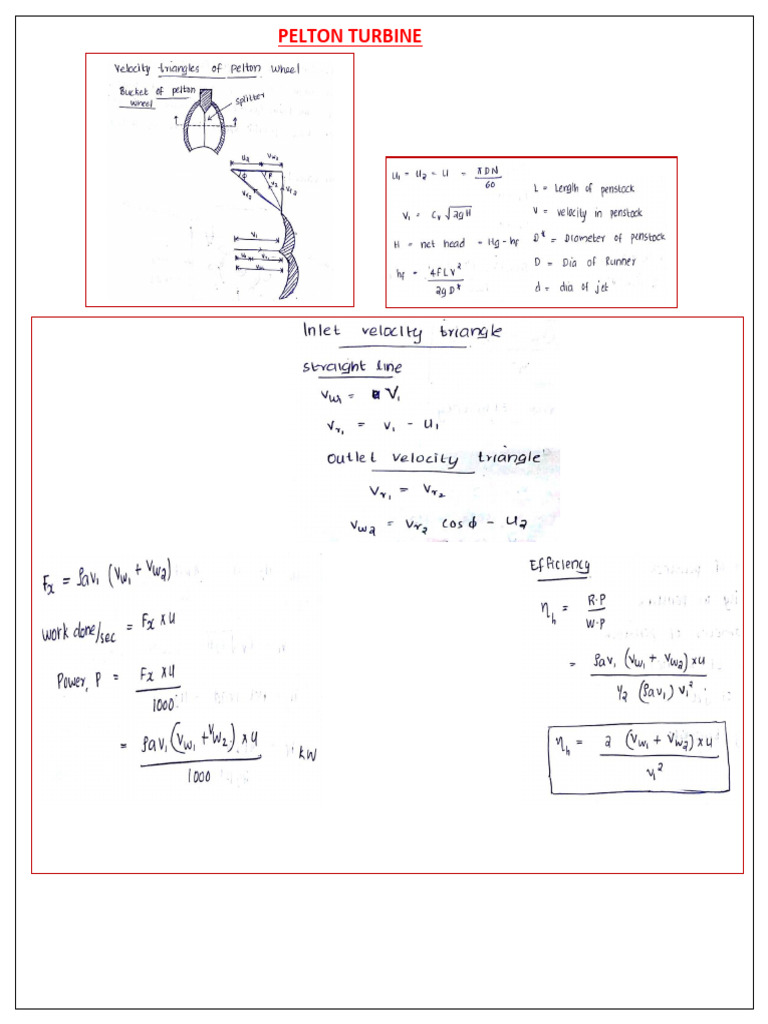 PELTON TURBINE
Velocity triangles of pelton wheel
Bucket of pelton
wheel
splitter
u₂ Vw₂
φ β
Vr₂ V₂ Vf₂
V₁
u₁ Vr₁
Vw₁
u₁ = u₂ = u = πDN/60
V₁ = Cv √2gH
H = net head = Hg - hf
hf = 4fLV²/2gD*
L = Length of penstock
V = velocity in penstock
D* = Diameter of penstock
D = Dia of Runner
d = dia of jet
Inlet velocity triangle
straight line
Vw₁ = V₁
Vr₁ = V₁ - u₁
outlet velocity triangle
Vr₁ = Vr₂
Vw₂ = Vr₂ cosφ - u₂
Fx = ρav₁ (Vw₁ + Vw₂)
work done/sec = Fx × u
Power, P = Fx × u/1000
= ρav₁ (Vw₁ + Vw₂) × u/1000 kW
Efficiency
ηh = R.P/W.P
= ρav₁ (Vw₁ + Vw₂) × u/½ (ρav₁) v₁²
ηh = 2 (Vw₁ + Vw₂) × u/v₁²